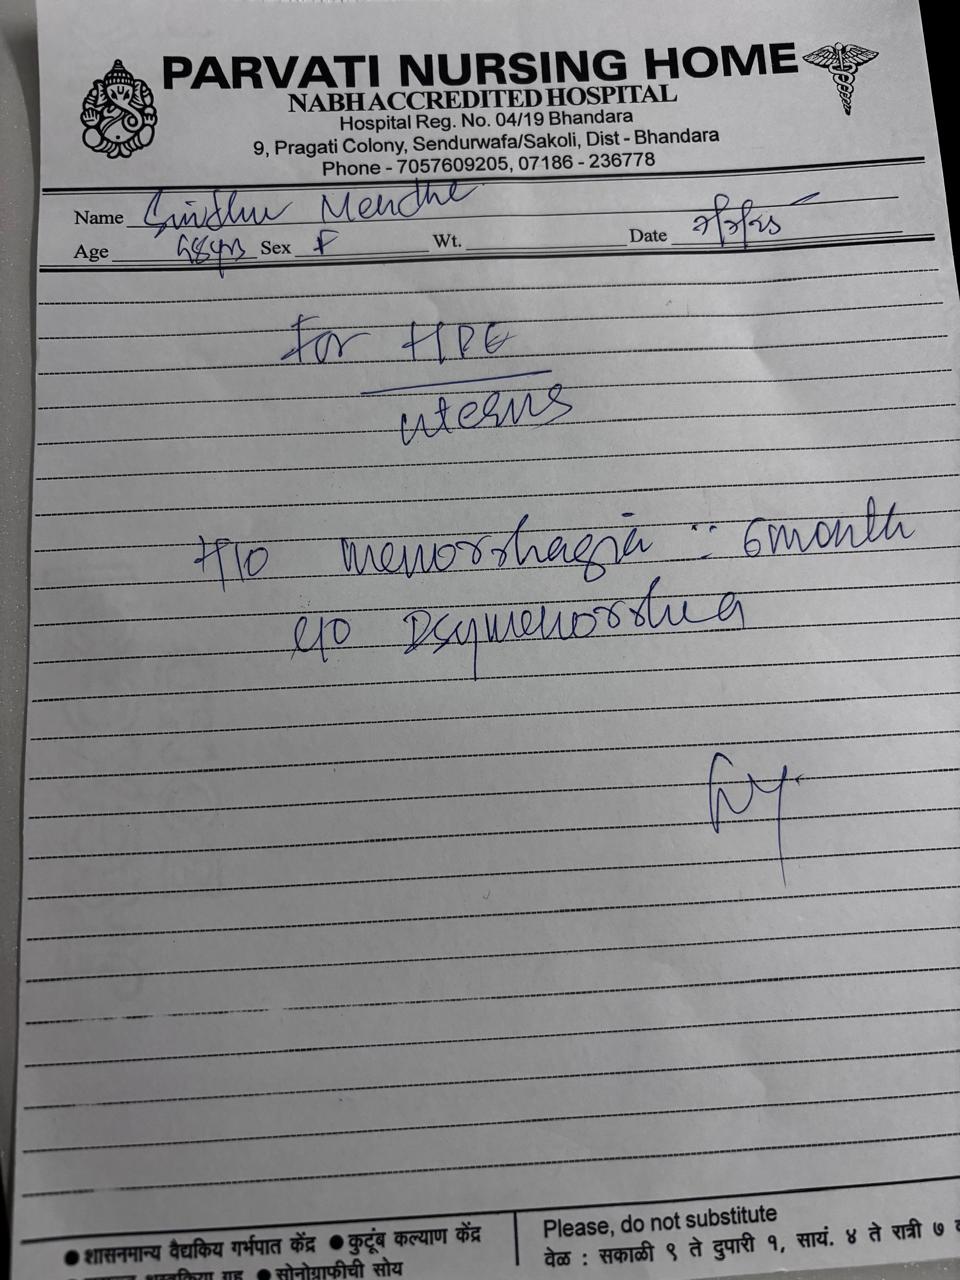 PARVATI NURSING HOME
NABH ACCREDITED HOSPITAL
Hospital Reg. No. 04/19 Bhandara
9, Pragati Colony, Sendurwafa/Sakoli, Dist - Bhandara
Phone - 7057609205, 07186 - 236778
Name Sindhu Mendhe
Age Sex F Wt. Date
For HPE
uterus
H/O menorrhagia :: 6 month
C/O Dsymenorrhea
● शासनमान्य वैद्यकिय गर्भपात केंद्र ● कुटूंब कल्याण केंद्र
● सोनोग्राफीची सोय
Please, do not substitute
वेळ : सकाळी ९ ते दुपारी १, सायं. ४ ते रात्री ७